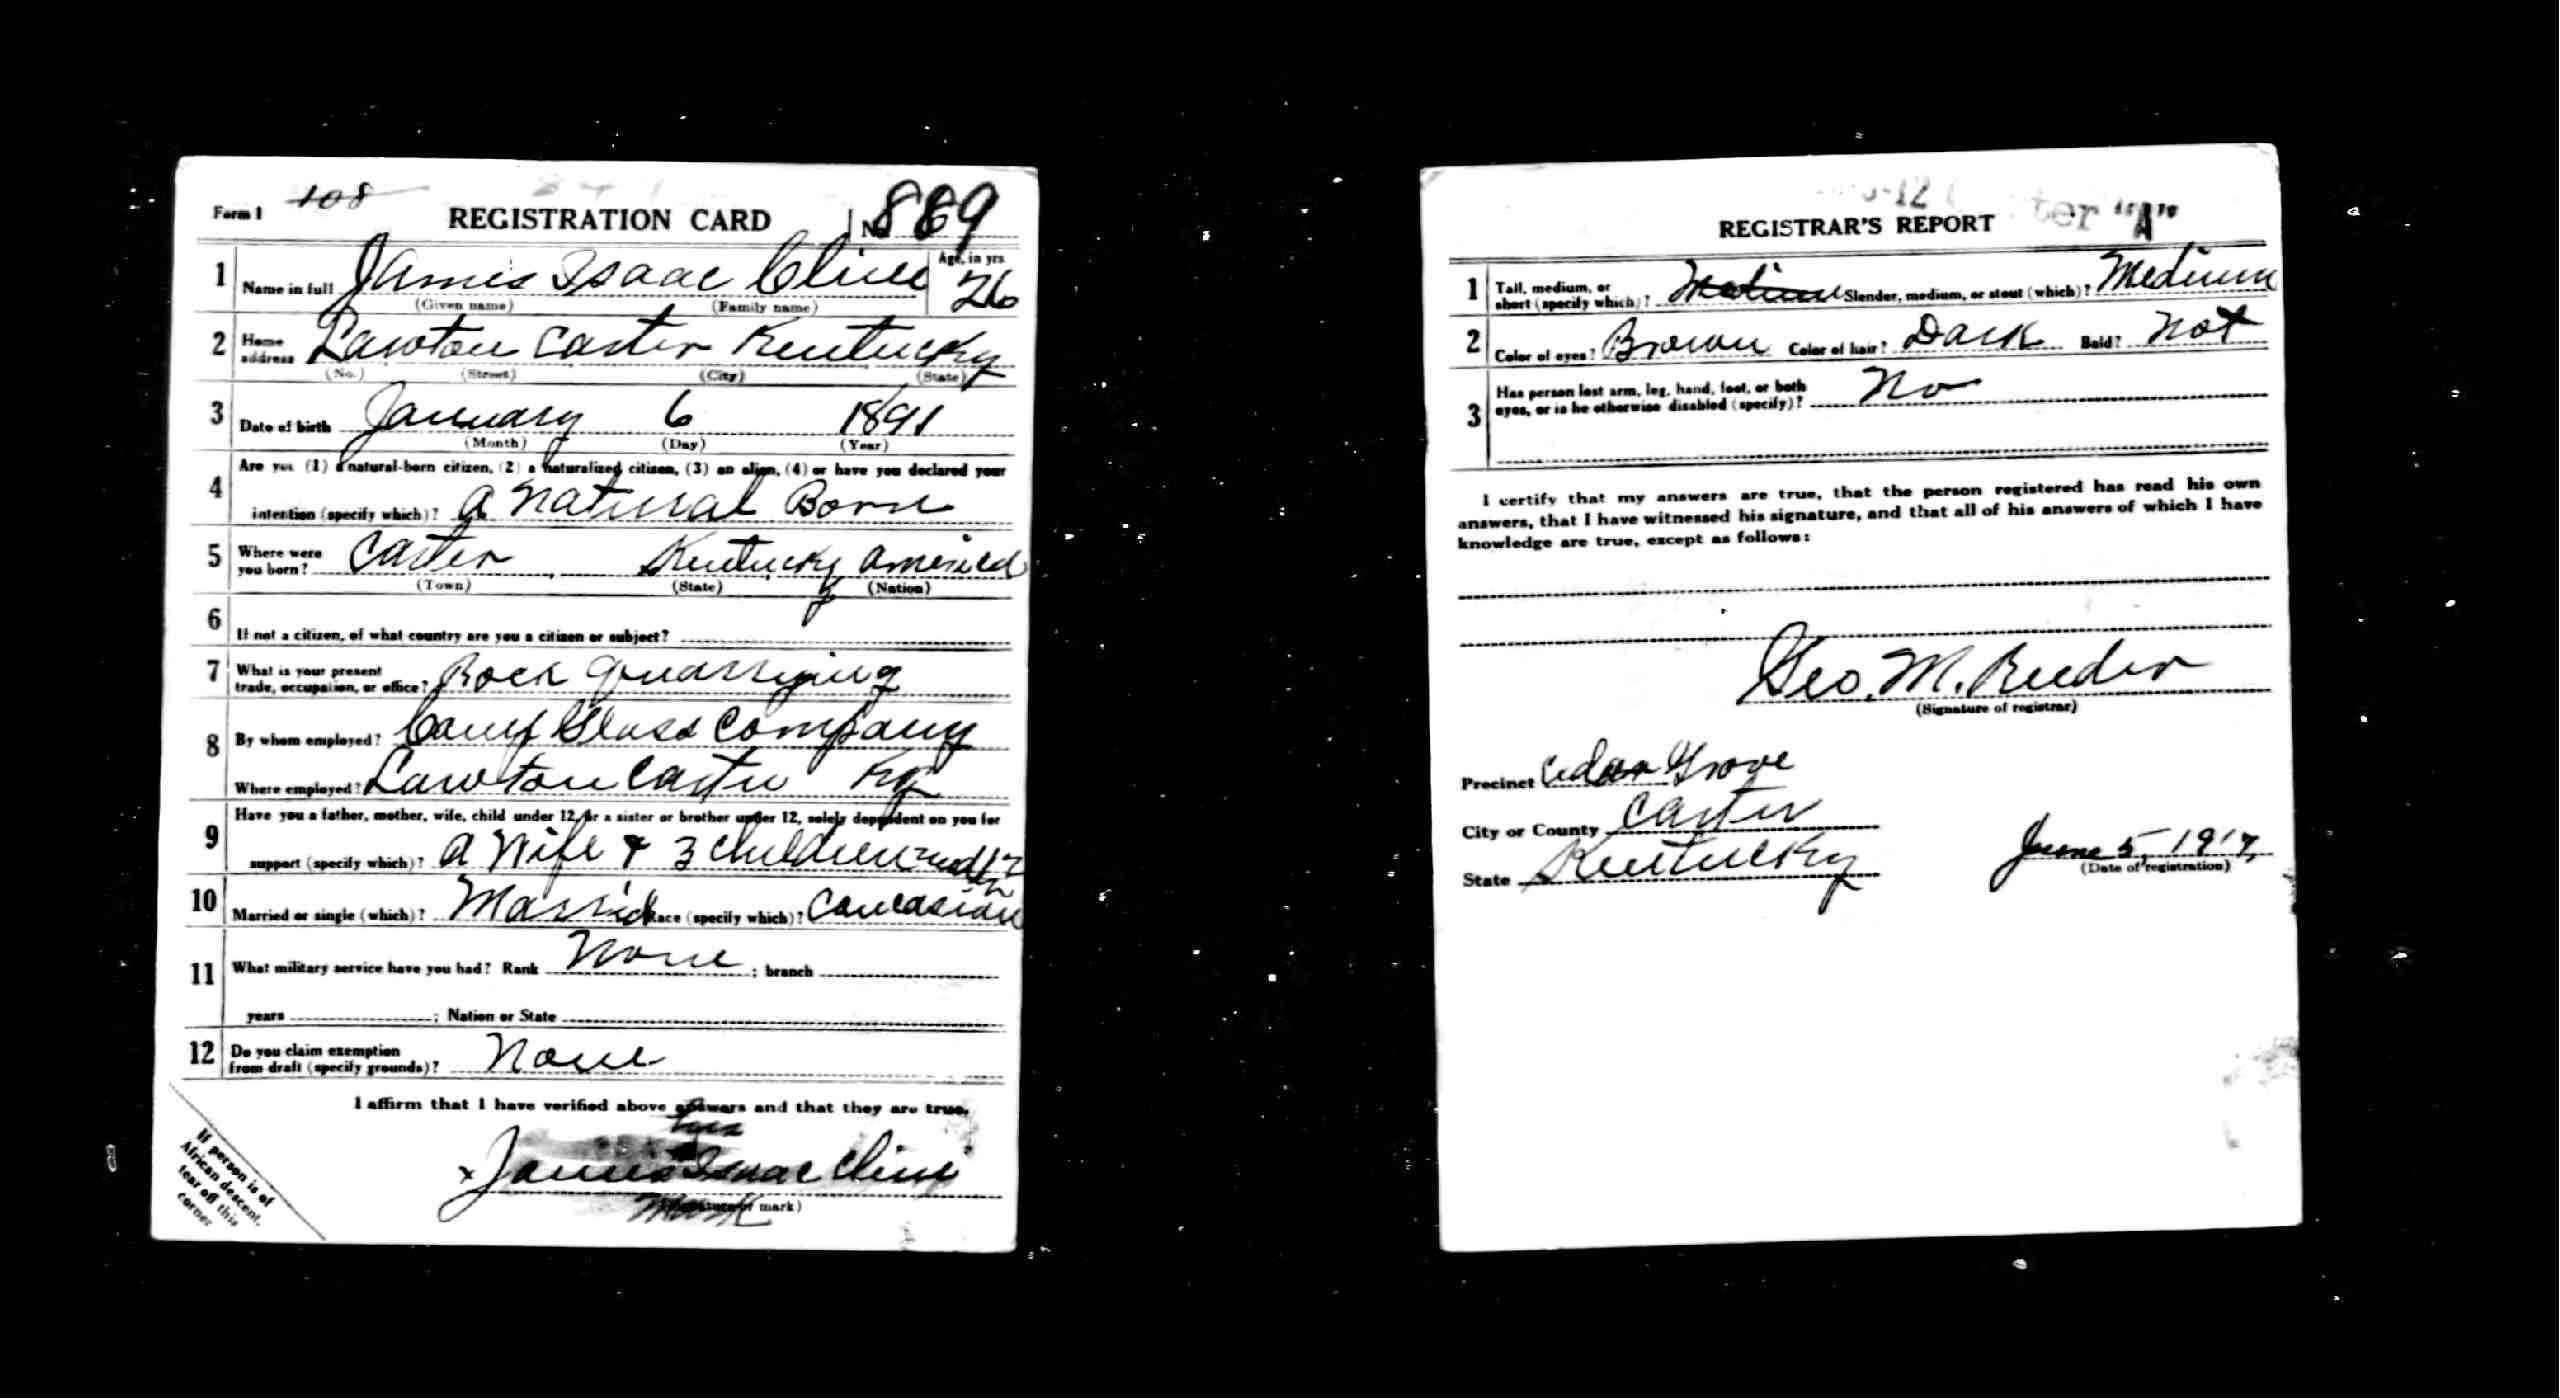 Form 1 108 REGISTRATION CARD No. 889
1 Name in full James Isaac Cline Age, in yrs. 26
(Given name) (Family name)
2 Home address Lawton Carter Kentucky
(No.) (Street) (City) (State)
3 Date of birth January 6 1891
(Month) (Day) (Year)
4 Are you (1) a natural-born citizen, (2) a naturalized citizen, (3) an alien, (4) or have you declared your
intention (specify which)? a natural Born
5 Where were you born? Carter Kentucky America
(Town) (State) (Nation)
6 If not a citizen, of what country are you a citizen or subject?
7 What is your present trade, occupation, or office? Rock quarrying
8 By whom employed? Camp Glass Company
Where employed? Lawton Carter Ky
9 Have you a father, mother, wife, child under 12, or a sister or brother under 12, solely dependent on you for
support (specify which)? a Wife & 3 children und 12
10 Married or single (which)? Married Race (specify which)? Caucasian
11 What military service have you had? Rank None ; branch
years ; Nation or State
12 Do you claim exemption from draft (specify grounds)? None
I affirm that I have verified above answers and that they are true.
his
x James Isaac Cline
(Signature or mark)
mark
If person is of
African descent,
tear off this
corner
-12 ter "A"
REGISTRAR'S REPORT
1 Tall, medium, or short (specify which)? Medium Slender, medium, or stout (which)? Medium
2 Color of eyes? Brown Color of hair? Dark Bald? Not
3 Has person lost arm, leg, hand, foot, or both
eyes, or is he otherwise disabled (specify)? No
I certify that my answers are true, that the person registered has read his own
answers, that I have witnessed his signature, and that all of his answers of which I have
knowledge are true, except as follows:
Geo. M. Reeder
(Signature of registrar)
Precinct Cedar Grove
City or County Carter
State Kentucky
June 5, 1917
(Date of registration)